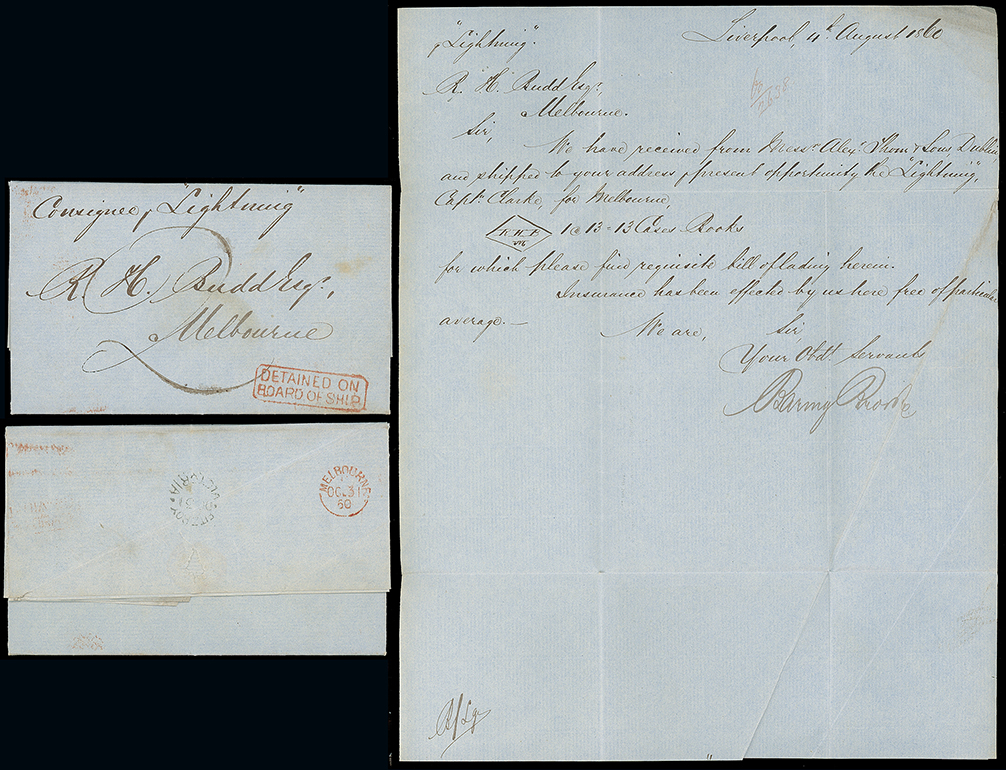 Consignee p "Lightning"
R. H. Budd Esqr,
Melbourne
2
DETAINED ON
BOARD OF SHIP
VICTORIA
31
MELBOURNE
OC 31
60
A
Liverpool, 4th August 1860
p "Lightning".
R. H. Budd Esqr,
Melbourne.
Sir,
We have received from Messrs Alexr Thom & Sons Dublin
and shipped to your address p present opportunity the "Lightning",
Captn Clarke, for Melbourne,
R H B 1 @ 13 = 13 Cases Books
for which please find requisite bill of lading herein.
Insurance has been effected by us here free of particular
average. — We are, Sir
Your Obdt Servants
Baring Brothers